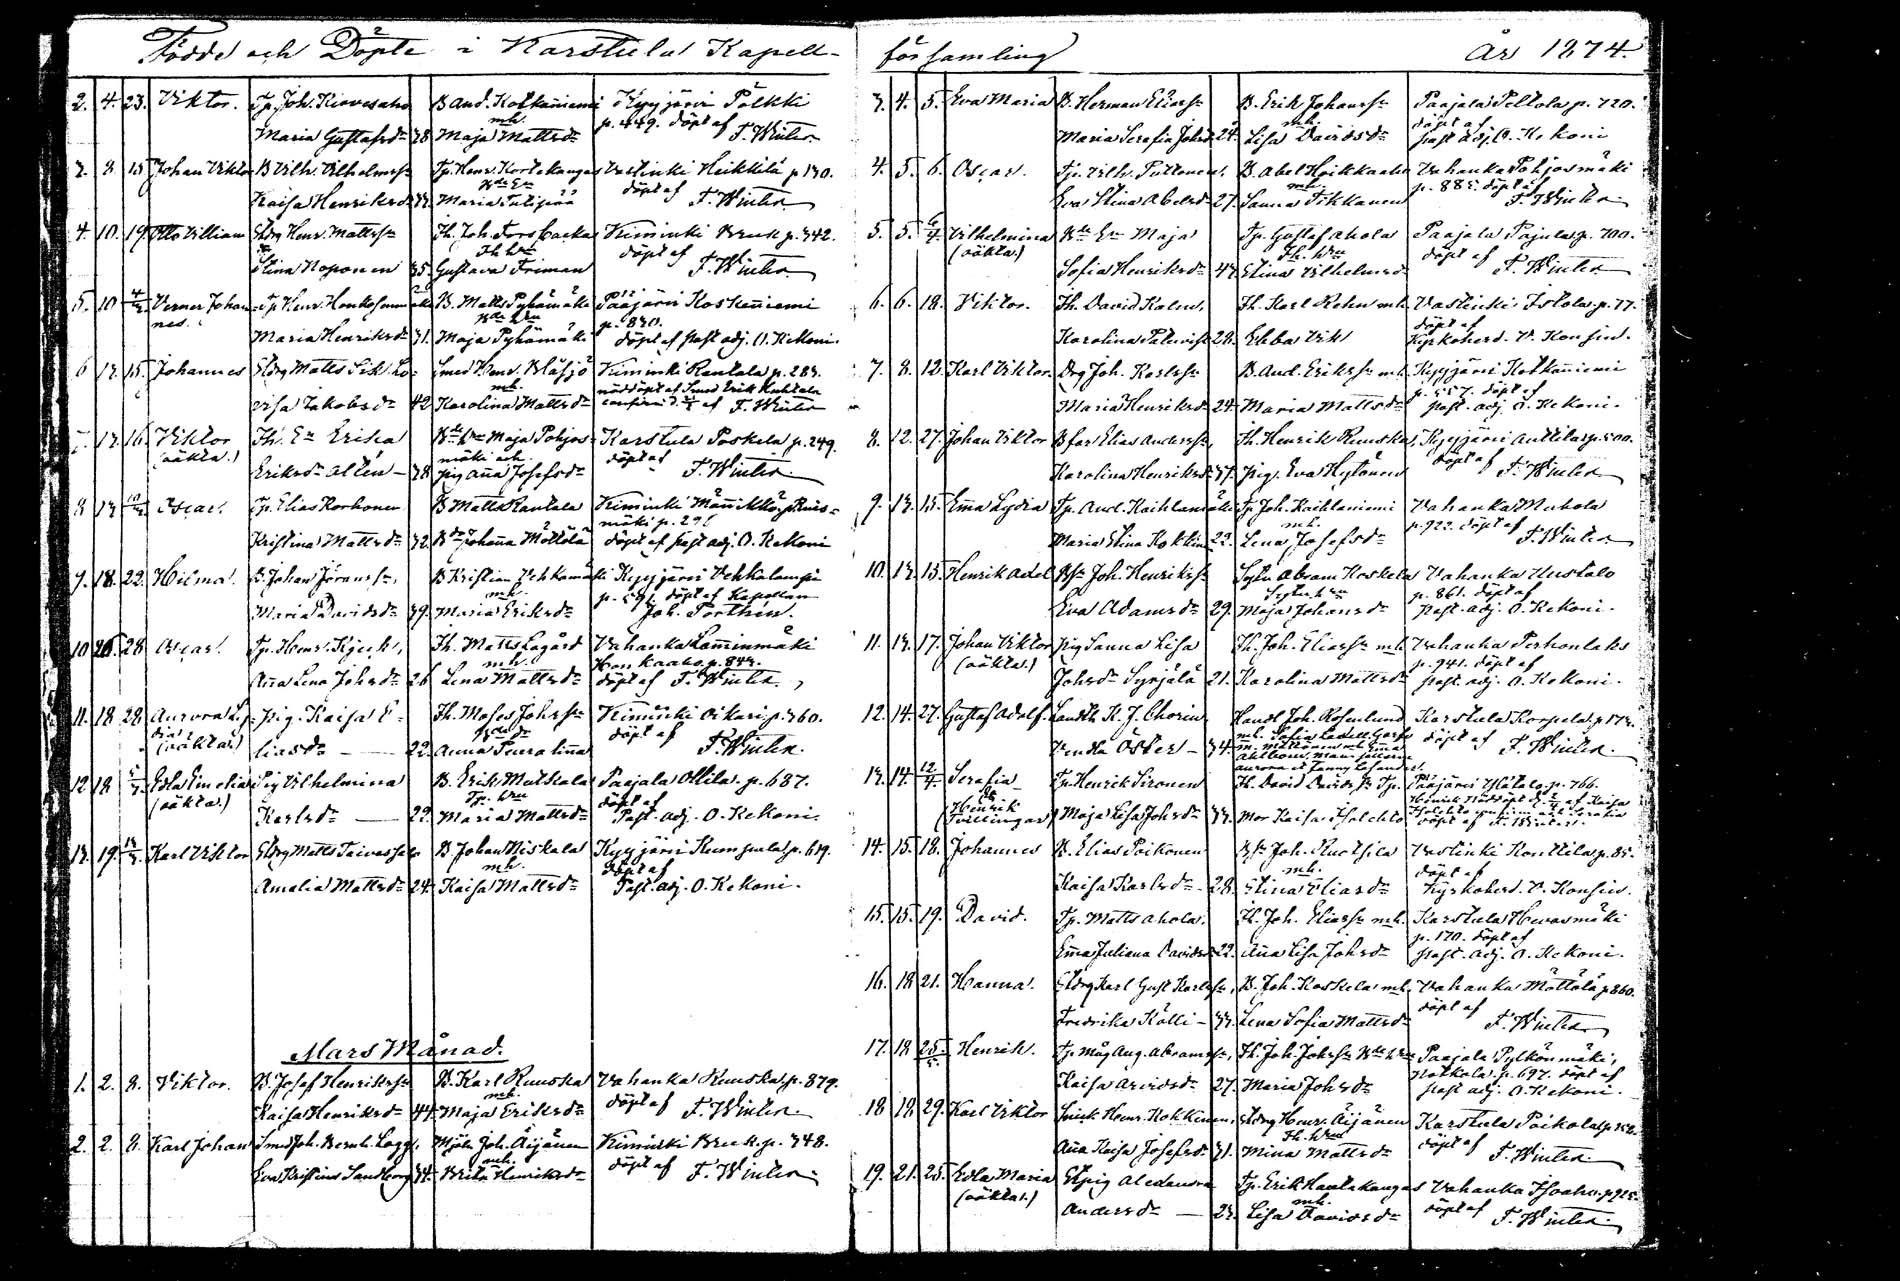 Födde och Döpte i Karstula Kapell-
2. 4. 23. Viktor. Tp. Joh. Kiovesaho B And. Kotkaniemi Kyyjärvi Pölkki
mh. p. 449. döpt af
Maria Gustafsd. 28 Maja Mattsd. F. Winter
3. 8. 15 Johan Viktor B Vilh. Vilhelmss. Tp. Henr. Kortekangas Vastinki Heikkilä p. 130.
döpt af
Kaisa Henriksd. Maria Tulipää F. Winter
4. 10. 19 Otto Villiam Henr. Mattss. Th. Joh. Forsbacka Kiminki Bruk p. 342.
Th. hru döpt af
Stina Koponen 35. Gustava Friman F. Winter
5. 10 4/3 Verner Johannes Tp. Henr. B. Matts Pyhämäki Pääjärvi Koskenniemi
p. 830.
Maria Henriksd. 31. Maja Pyhämäki döpt af past adj. O. Kekoni.
6 13. 15. Johannes Matts Lo- Smed Henr. Blåsjö Kiminki Rantala p. 283.
mh. nöddöpt af Smed Erik Huhtala
visa Jakobsd. 42 Karolina Mattsd. af F. Winter
7. 13. 16. Viktor Th. En Erika Maja Pohjos- Karstula Poskela p. 249.
(oäkta.) mäki och döpt af
Eriksd. Alten 28 pig Anna Josefsd. F. Winter
8 13 Oscar. Tp. Elias Korhonen B Matts Rantala Kiminki Männikkö Ruis-
mäki p. 296
Kristina Mattsd. 32. Johanna Möttölä döpt af past adj. O. Kekoni
9. 18. 22. Hilma. B. Johan Jöranss. B Kristian Vehkamäki Kyyjärvi Vehkalampi
mh. p. 591. döpt af Kapellan
Maria Davidsd. 39. Maria Eriksd. Joh. Porthén.
10 26. 28 Oscar. Tp. Henr. Th. Matts Lagård Vahanka Lamminmäki
mh. Honkaaho p. 843.
Anna Lena Johsd. 26 Lena Mattsd. döpt af F. Winter
11. 18 28. Aurora Ly- pig. Kaisa E- Th. Moses Johss. Kiminki Oikari p. 360.
dia döpt af
(oäkta.) liasd. 22. Anna Peuralinna F. Winter.
12 18 5/3 Edla Emelia Pig Vilhelmina B. Erik Matskala Paajala Ollila p. 687.
(oäkta.) Tp. hru döpt af
Karlsd. 22. Maria Mattsd. Past. adj. O. Kekoni.
13. 19. Karl Viktor Matts Taivassalo B Johan Niskala Kyyjärvi Kumpula p. 619.
mh. döpt af
Amalia Mattsd. 24. Kaisa Mattsd. Past. adj. O. Kekoni.
Mars Månad.
1. 2. 8. Viktor. B. Josef Henrikss. B. Karl Ruuska Vahanka Ruuska p. 879.
mh. döpt af
Kaisa Henriksd. 44. Maja Eriksd. F. Winter.
2. 2. 8. Karl Johan Smed Joh. Bernh. Lagg. Mjöln. Joh. Äijänen Kiminki Bruk p. 348.
mh. döpt af
Eva Kristina Sandberg 34. Brita Henriksd. F. Winter.
församling År 1874.
3. 4. 5. Eva Maria B. Herman Eliass. B. Erik Johanss. Paajala Peltola p. 720.
mh. döpt af
Maria Serafia Johsd. 24. Lisa Davidsd. past adj. O. Kekoni
4. 5. 6. Oscar. Tp. Vilh. Puttonen. B. Abel Hoikkaaho Vahanka Pohjosmäki
mh. p. 885. döpt af
Eva Stina Abelsd. 27. Sanna Tikkanen F. Winter
5. 5. 6/4 Vilhelmina Maja Tp. Gustaf Ahola Paajala Pajula p. 700.
(oäkta.) Th. hru döpt af
Sofia Henriksd. 43. Stina Vilhelmsd. F. Winter
6. 6. 18. Viktor. Th. David Kalm. Th. Karl Rohn mh. Vastinki Istola p. 77.
döpt af
Karolina Palmvist 28. Ebba Vik Kyrkoherd. V. Konsin.
7. 8. 12. Karl Viktor. Drg Joh. Karlss. B. And. Erikss. mh. Kyyjärvi Kotkaniemi
p. 557. döpt af
Maria Henriksd. 24. Maria Mattsd. past. adj. O. Kekoni.
8. 12. 27. Johan Viktor Elias Anderss. Th. Henrik Ruuska, Kyyjärvi Anttila p. 500.
döpt af
Karolina Henriksd. 37. pig. Eva Hytönen F. Winter
9. 13. 15. Emma Lydia Tp. And. Kaihlamäki Tp Joh. Kaihlaniemi Vahanka Mahola
mh. p. 922. döpt af
Maria Stina Kokkinen 22. Lena Josefsd. F. Winter
10. 13. 15. Henrik Adel Joh. Henrikss. Abram Koskela Vahanka Uustalo
p. 861. döpt af
Eva Adamsd. 29. Maja Johansd. past. adj. O. Kekoni.
11. 13. 17. Johan Viktor pig Sanna Lisa Th. Joh. Eliass. mh. Vahanka Perhonlaks
(oäkta.) p. 941. döpt af
Johsd. Syrjälä 21. Karolina Mattsd. past. adj. O. Kekoni.
12. 14. 27. Gustaf Adolf. K. J. Chorin Handl. Joh. Rosenlund Karstula Korpela p. 173.
döpt af
Vendla Öster 34. F. Winter.
13. 14 12/4 Serafia Tp. Henrik Sironen Th. David Davidss. Tp. Pääjärvi Ylätalo p. 766.
Henrik
(Tvillingar) Maja Lisa Johsd. 33. Mor Kaisa
14. 15. 18. Johannes B. Elias Poikonen Joh. Ruotsila Vastinki Konttila p. 85.
mh. döpt af
Kaisa Karlsd. 28. Stina Eliasd. Kyrkoherd. V. Konsin.
15. 15. 19. David. Tp. Matts Ahola. Th. Joh. Eliass. mh. Karstula Hevosmäki
p. 170. döpt af
Emma Juliana Davidsd. 22. Anna Lisa Johsd. past. adj. O. Kekoni.
16. 18 21. Hanna. Karl Gust Karlss. B. Joh. Koskela mh. Vahanka Möttölä p. 860.
döpt af
Fredrika Kölli 33. Lena Sofia Mattsd. F. Winter
17. 18 25/5. Henrik. Tp. Måg Aug. Abramss. Th. Joh. Johss. Paajala Pylkönmäki,
p. 697. döpt af
Kaisa Arvidsd. 27. Maria Johsd. past adj. O. Kekoni.
18 18 29. Karl Viktor Henr. Kokkinen, Henr. Äijänen Karstula Poikola
Th. hru döpt af
Anna Kaisa Josefsd. 31. Mina Mattsd. F. Winter.
19. 21. 25. Edla Maria pig Alexandra Tp. Erik Hautakangas Vahanka Isoaho p. 925.
(oäkta.) mh. döpt af
Andersd. 23. Lisa Davidsd. F. Winter.